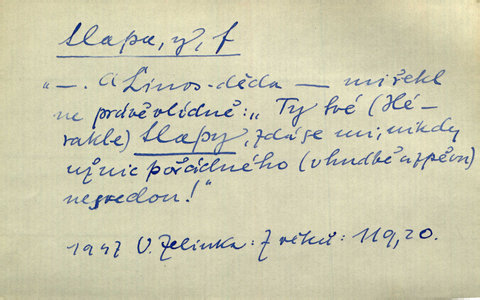 tlapa, y, f
"—. A Linos-děda — mi řekl
ne právě vlídně: „Ty tvé (Hé-
rakle) tlapy, zdá se mi, nikdy
už nic pořádného (v hudbě a zpěvu)
nesvedou!"
1947 V. Zelinka: Z věků: 119,20.